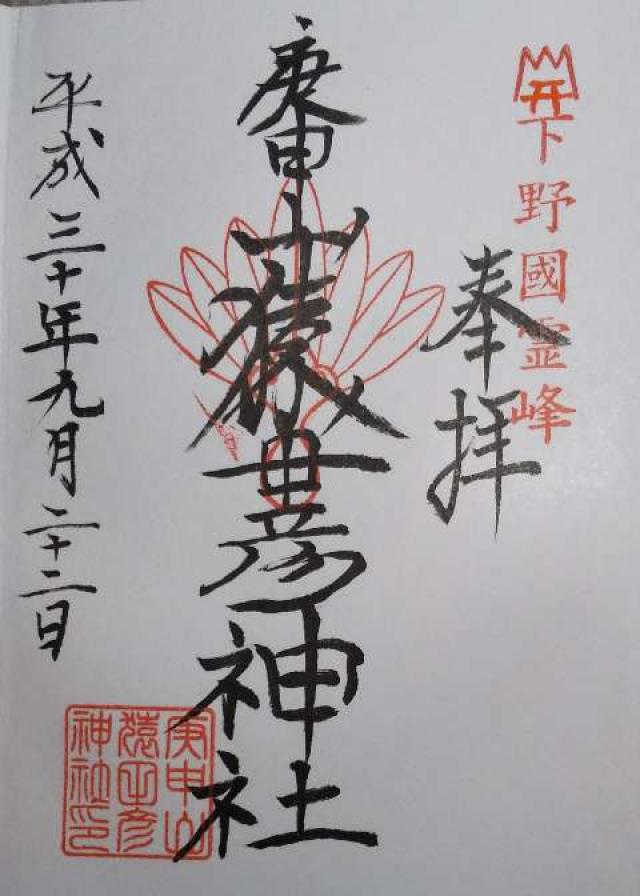 下野國霊峰
奉拝
庚申山猿田彦神社
平成三十年九月二十二日
庚申山
猿田彦
神社印